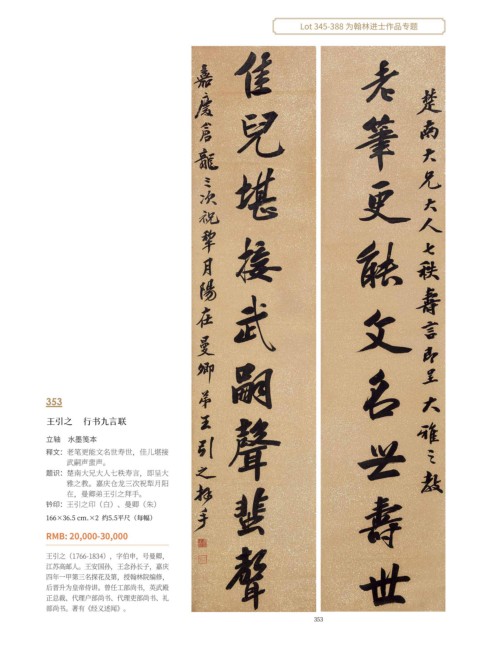 Lot 345-388 为翰林进士作品专题
楚南大兄大人七秩壽言即呈大雅之教
老筆更能文名世壽世
佳兒堪接武嗣聲蜚聲
嘉慶倉龍三次祝犂月陽在曼卿弟王引之拜手
353
王引之 行书九言联
立轴 水墨笺本
释文：老笔更能文名世寿世，佳儿堪接
武嗣声蜚声。
题识：楚南大兄大人七秩寿言，即呈大
雅之教。嘉庆仓龙三次祝犂月阳
在，曼卿弟王引之拜手。
钤印：王引之印（白）、曼卿（朱）
166×36.5 cm. ×2 约5.5平尺（每幅）
RMB: 20,000-30,000
王引之（1766-1834），字伯申，号曼卿，
江苏高邮人。王安国孙，王念孙长子，嘉庆
四年一甲第三名探花及第，授翰林院编修，
后晋升为皇帝侍讲。曾任工部尚书，英武殿
正总裁，代理户部尚书、代理吏部尚书，礼
部尚书。著有《经义述闻》。
353